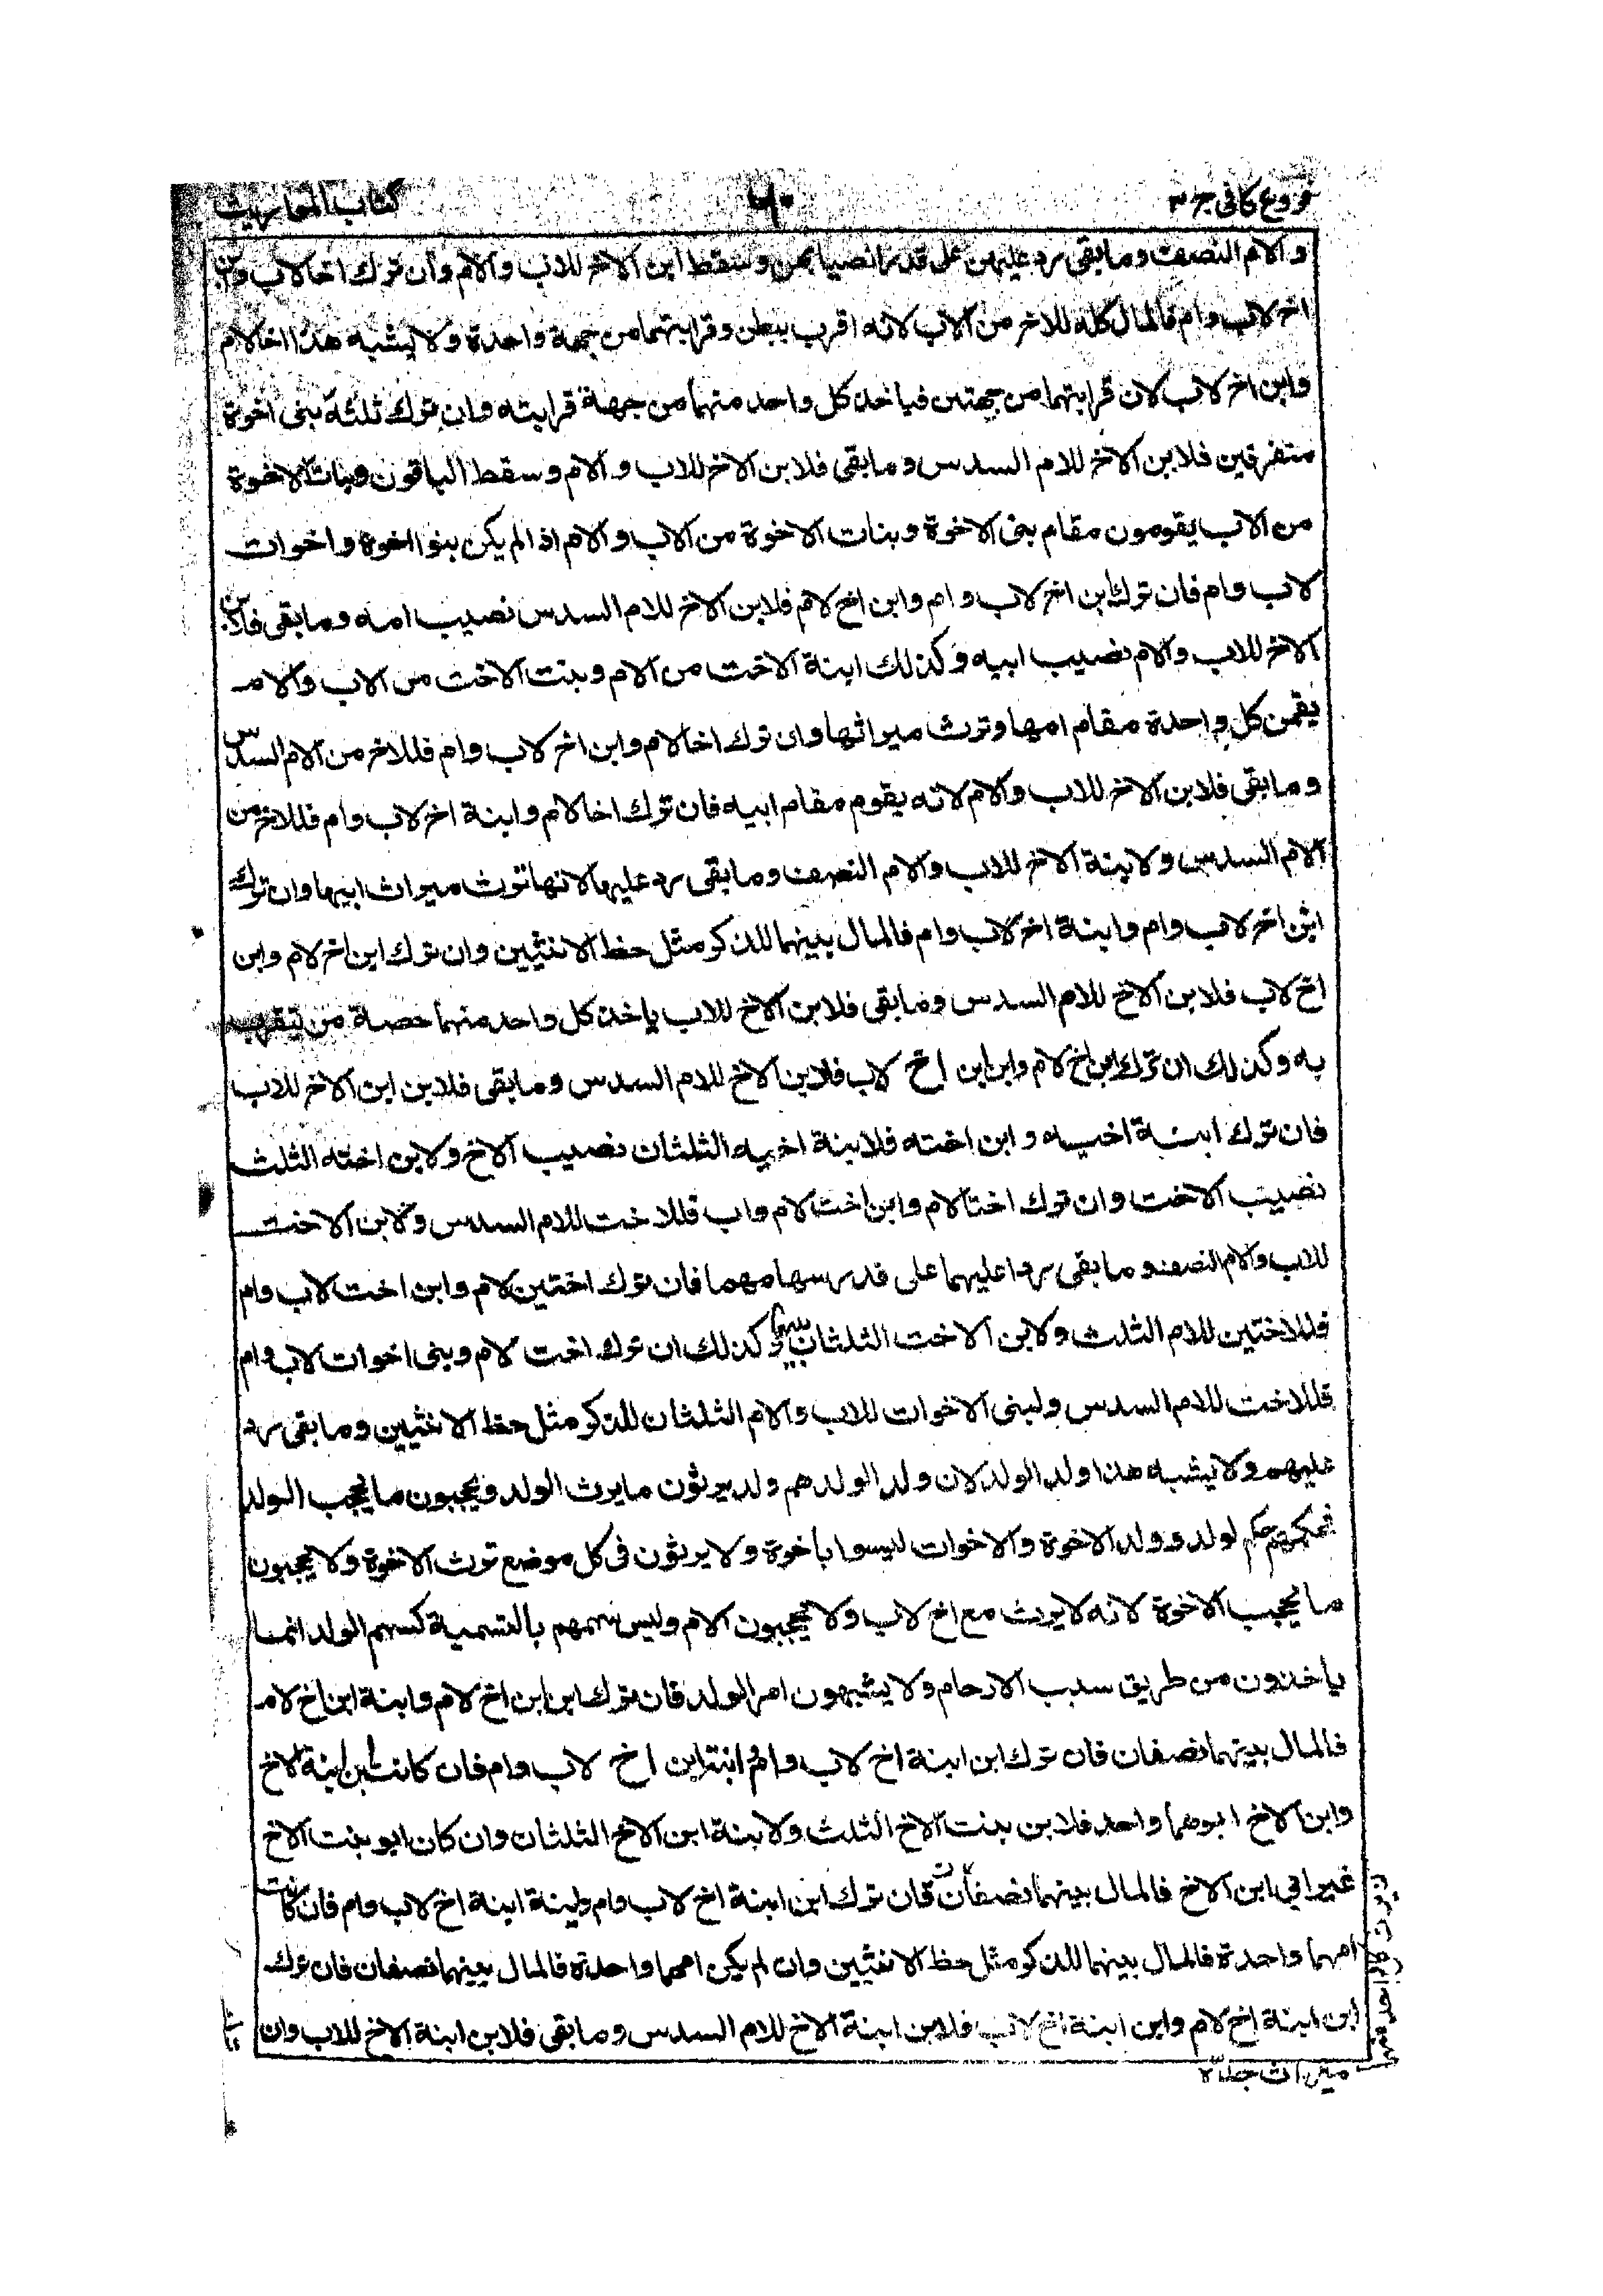 فروع کافی ج ۳
۶۰
کتاب المواریث
والام النصف وما بقی رد علیهن علی قدر انصبائهن وسقط ابن الاخ للاب والام وان ترك اخا لاب وابن
اخ لاب وام فالمال کله للاخ من الاب لانه اقرب ببطن وقرابتهما من جهة واحدة ولا یشبه هذا اخا لام
وابن اخ لاب لان قرابتهما من جهتین فیاخذ کل واحد منهما من جهة قرابته وان ترك ثلثة بنی اخوة
متفرقین فلابن الاخ للام السدس وما بقی فلابن الاخ للاب والام وسقط الباقون وبنات الاخوة
من الاب یقومون مقام بنی الاخوة وبنات الاخوة من الاب والام اذا لم یکن بنوا اخوة واخوات
لاب وام فان ترك ابن اخ لاب وام وابن اخ لام فلابن الاخ للام السدس نصیب امه وما بقی فلابن
الاخ للاب والام نصیب ابیه وکذلك ابنة الاخت من الام وبنت الاخت من الاب والام
یقمن کل واحدة مقام امها وترث میراثها وان ترك اخا لام وابن اخ لاب وام فللاخ من الام السدس
وما بقی فلابن الاخ للاب والام لانه یقوم مقام ابیه فان ترك اخا لام وابنة اخ لاب وام فللاخ من
الام السدس ولابنة الاخ للاب والام النصف وما بقی رد علیها لانها ترث میراث ابیها وان ترك
ابن اخ لاب وام وابنة اخ لاب وام فالمال بینهما للذکر مثل حظ الانثیین وان ترك ابن اخ لام وابن
اخ لاب فلابن الاخ للام السدس وما بقی فلابن الاخ للاب یاخذ کل واحد منهما حصة من یتقرب
به وکذلك ان ترك ابن اخ لام وابن ابن اخ لاب فلابن الاخ للام السدس وما بقی فلابن ابن الاخ للاب
فان ترك ابنة اخیه وابن اخته فلابنة اخیه الثلثان نصیب الاخ ولابن اخته الثلث
نصیب الاخت وان ترك اختا لام وابن اخت لام واب فللاخت للام السدس ولابن الاخت
للاب والام النصف وما بقی رد علیهما علی قدر سهامهما فان ترك اختین لام وابن اخت لاب وام
فللاختین للام الثلث ولابن الاخت الثلثان بینهما وکذلك ان ترك اخت لام وبنی اخوات لاب وام
فللاخت للام السدس ولبنی الاخوات للاب والام الثلثان للذکر مثل حظ الانثیین وما بقی رد
علیهم ولا یشبه هذا ولد الولد لان ولد الولد هم ولد یرثون ما یرث الولد ویحجبون ما یحجب الولد
فحکمهم حکم لولد وولد الاخوة والاخوات لیسوا باخوة ولا یرثون فی کل موضع ترث الاخوة ولا یحجبون
ما یحجب الاخوة لانه لا یرث مع اخ لاب ولا یحجبون الام ولیس سهمهم بالتسمیة کسهم الولد انما
یاخذون من طریق سبب الارحام ولا یشبهون امر الولد فان ترك ابن ابن اخ لام وابنة ابن اخ لام
فالمال بینهما نصفان فان ترك ابن ابنة اخ لاب وام وابنة ابن اخ لاب وام فان کانت ابن ابنة الاخ
وابن الاخ ابوهما واحد فلابن بنت الاخ الثلث ولابنة ابن الاخ الثلثان وان کان ابو بنت الاخ
غیر ابی ابن الاخ فالمال بینهما نصفان فان ترك ابن ابنة اخ لاب وام وابنة ابنة اخ لاب وام فان کانت
امهما واحدة فالمال بینهما للذکر مثل حظ الانثیین وان لم یکن امهما واحدة فالمال بینهما نصفان فان ترك
ابن ابنة اخ لام وابن ابنة اخ لاب فلابن ابنة الاخ للام السدس وما بقی فلابن ابنة الاخ للاب وان
میراث جدة